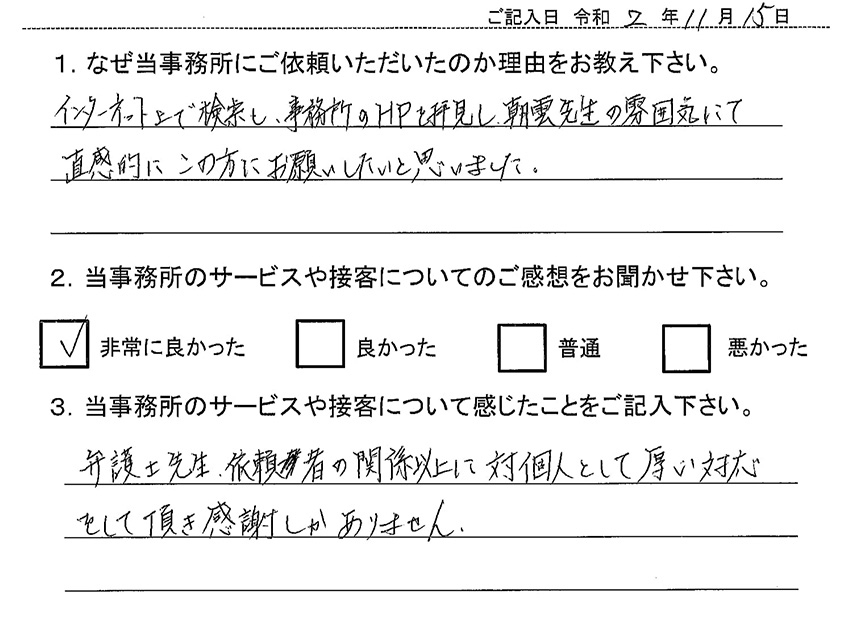 ご記入日 令和 2 年 11 月 15 日
1. なぜ当事務所にご依頼いただいたのか理由をお教え下さい。
インターネット上で検索し、事務所のHPを拝見し、朝雲先生の雰囲気にて
直感的にこの方にお願いしたいと思いました。
2. 当事務所のサービスや接客についてのご感想をお聞かせ下さい。
✓ 非常に良かった 良かった 普通 悪かった
3. 当事務所のサービスや接客について感じたことをご記入下さい。
弁護士先生、依頼者の関係以上に対個人として厚い対応
をして頂き感謝しかありません。